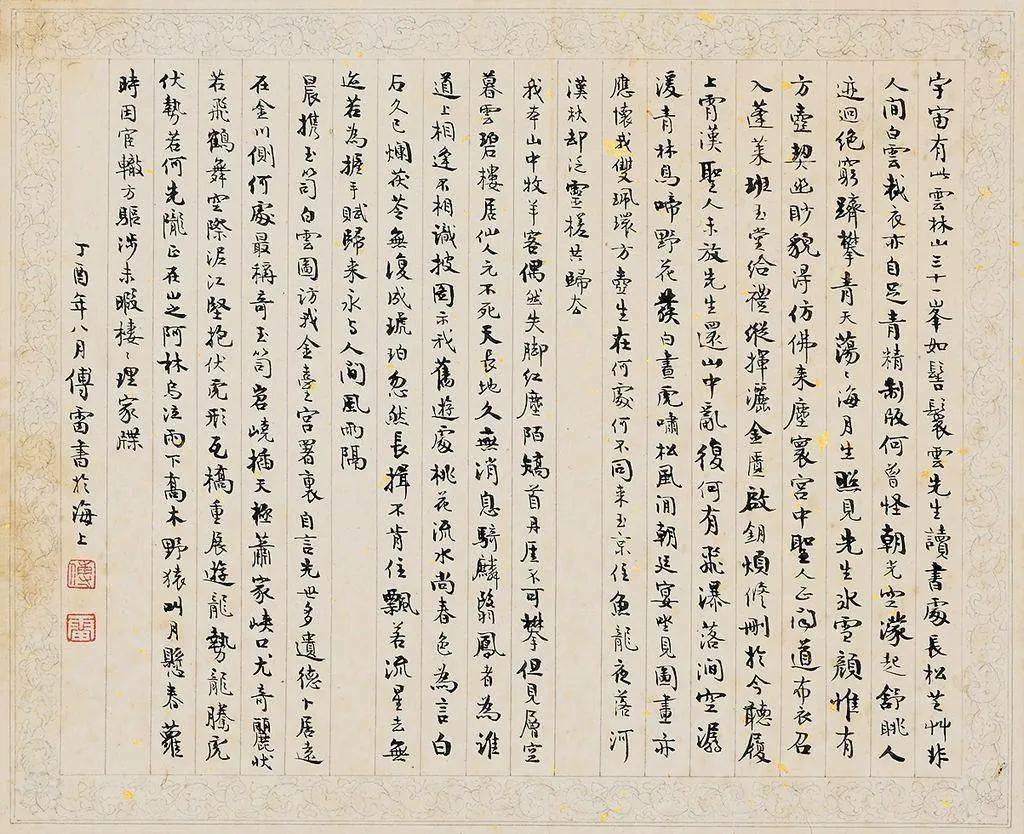 宇宙有此雲林山三十一峯如髻鬟雲先生讀書處長松芝艸非
人間白雲裁衣亦自足青精制飯何曾怪朝光空濛起舒眺人
迹迴絕窮躋攀青天蕩〻海月生照見先生冰雪顏惟有
方壺契幽眇貌得仿佛来塵寰宮中聖人正問道布衣召
入蓬莱班玉堂給禮縱揮灑金匱啟鈅煩修刪於今聽履
上霄漢聖人未放先生還山中亂復何有飛瀑落澗空潺
湲青林鳥啼野花發白晝虎嘯松風閒朝廷宴坐見圖畫亦
應懷我雙珮環方壺生在何處何不同来玉京住魚龍夜落河
漢秋却泛靈槎共歸去
我本山中牧羊客偶然失脚紅塵陌矯首丹厓不可攀但見層空
暮雲碧樓居仙人元不死天長地久無消息騎麟翳鳳者為誰
道上相逢不相識披圖示我舊遊處桃花流水尚春色為言白
石久已爛茯苓無復成琥珀忽然長揖不肯住飄若流星去無
迹若為握手賦歸来水与人間風雨隔
晨携玉笥白雲圖訪我金臺宮署裏自言先世多遺德卜居遠
在金川側何處最稱奇玉笥岩嶢插天極蕭家峽口尤奇麗狀
若飛鶴舞空際泥江堅抱伏虎形瓦橋重展遊龍勢龍騰虎
伏勢若何先隴正在山之阿林烏泣雨下喬木野猿叫月懸春蘿
時因宦轍方驅涉未暇樓〻理家牒
丁酉年八月傅雷書於海上
傅
雷